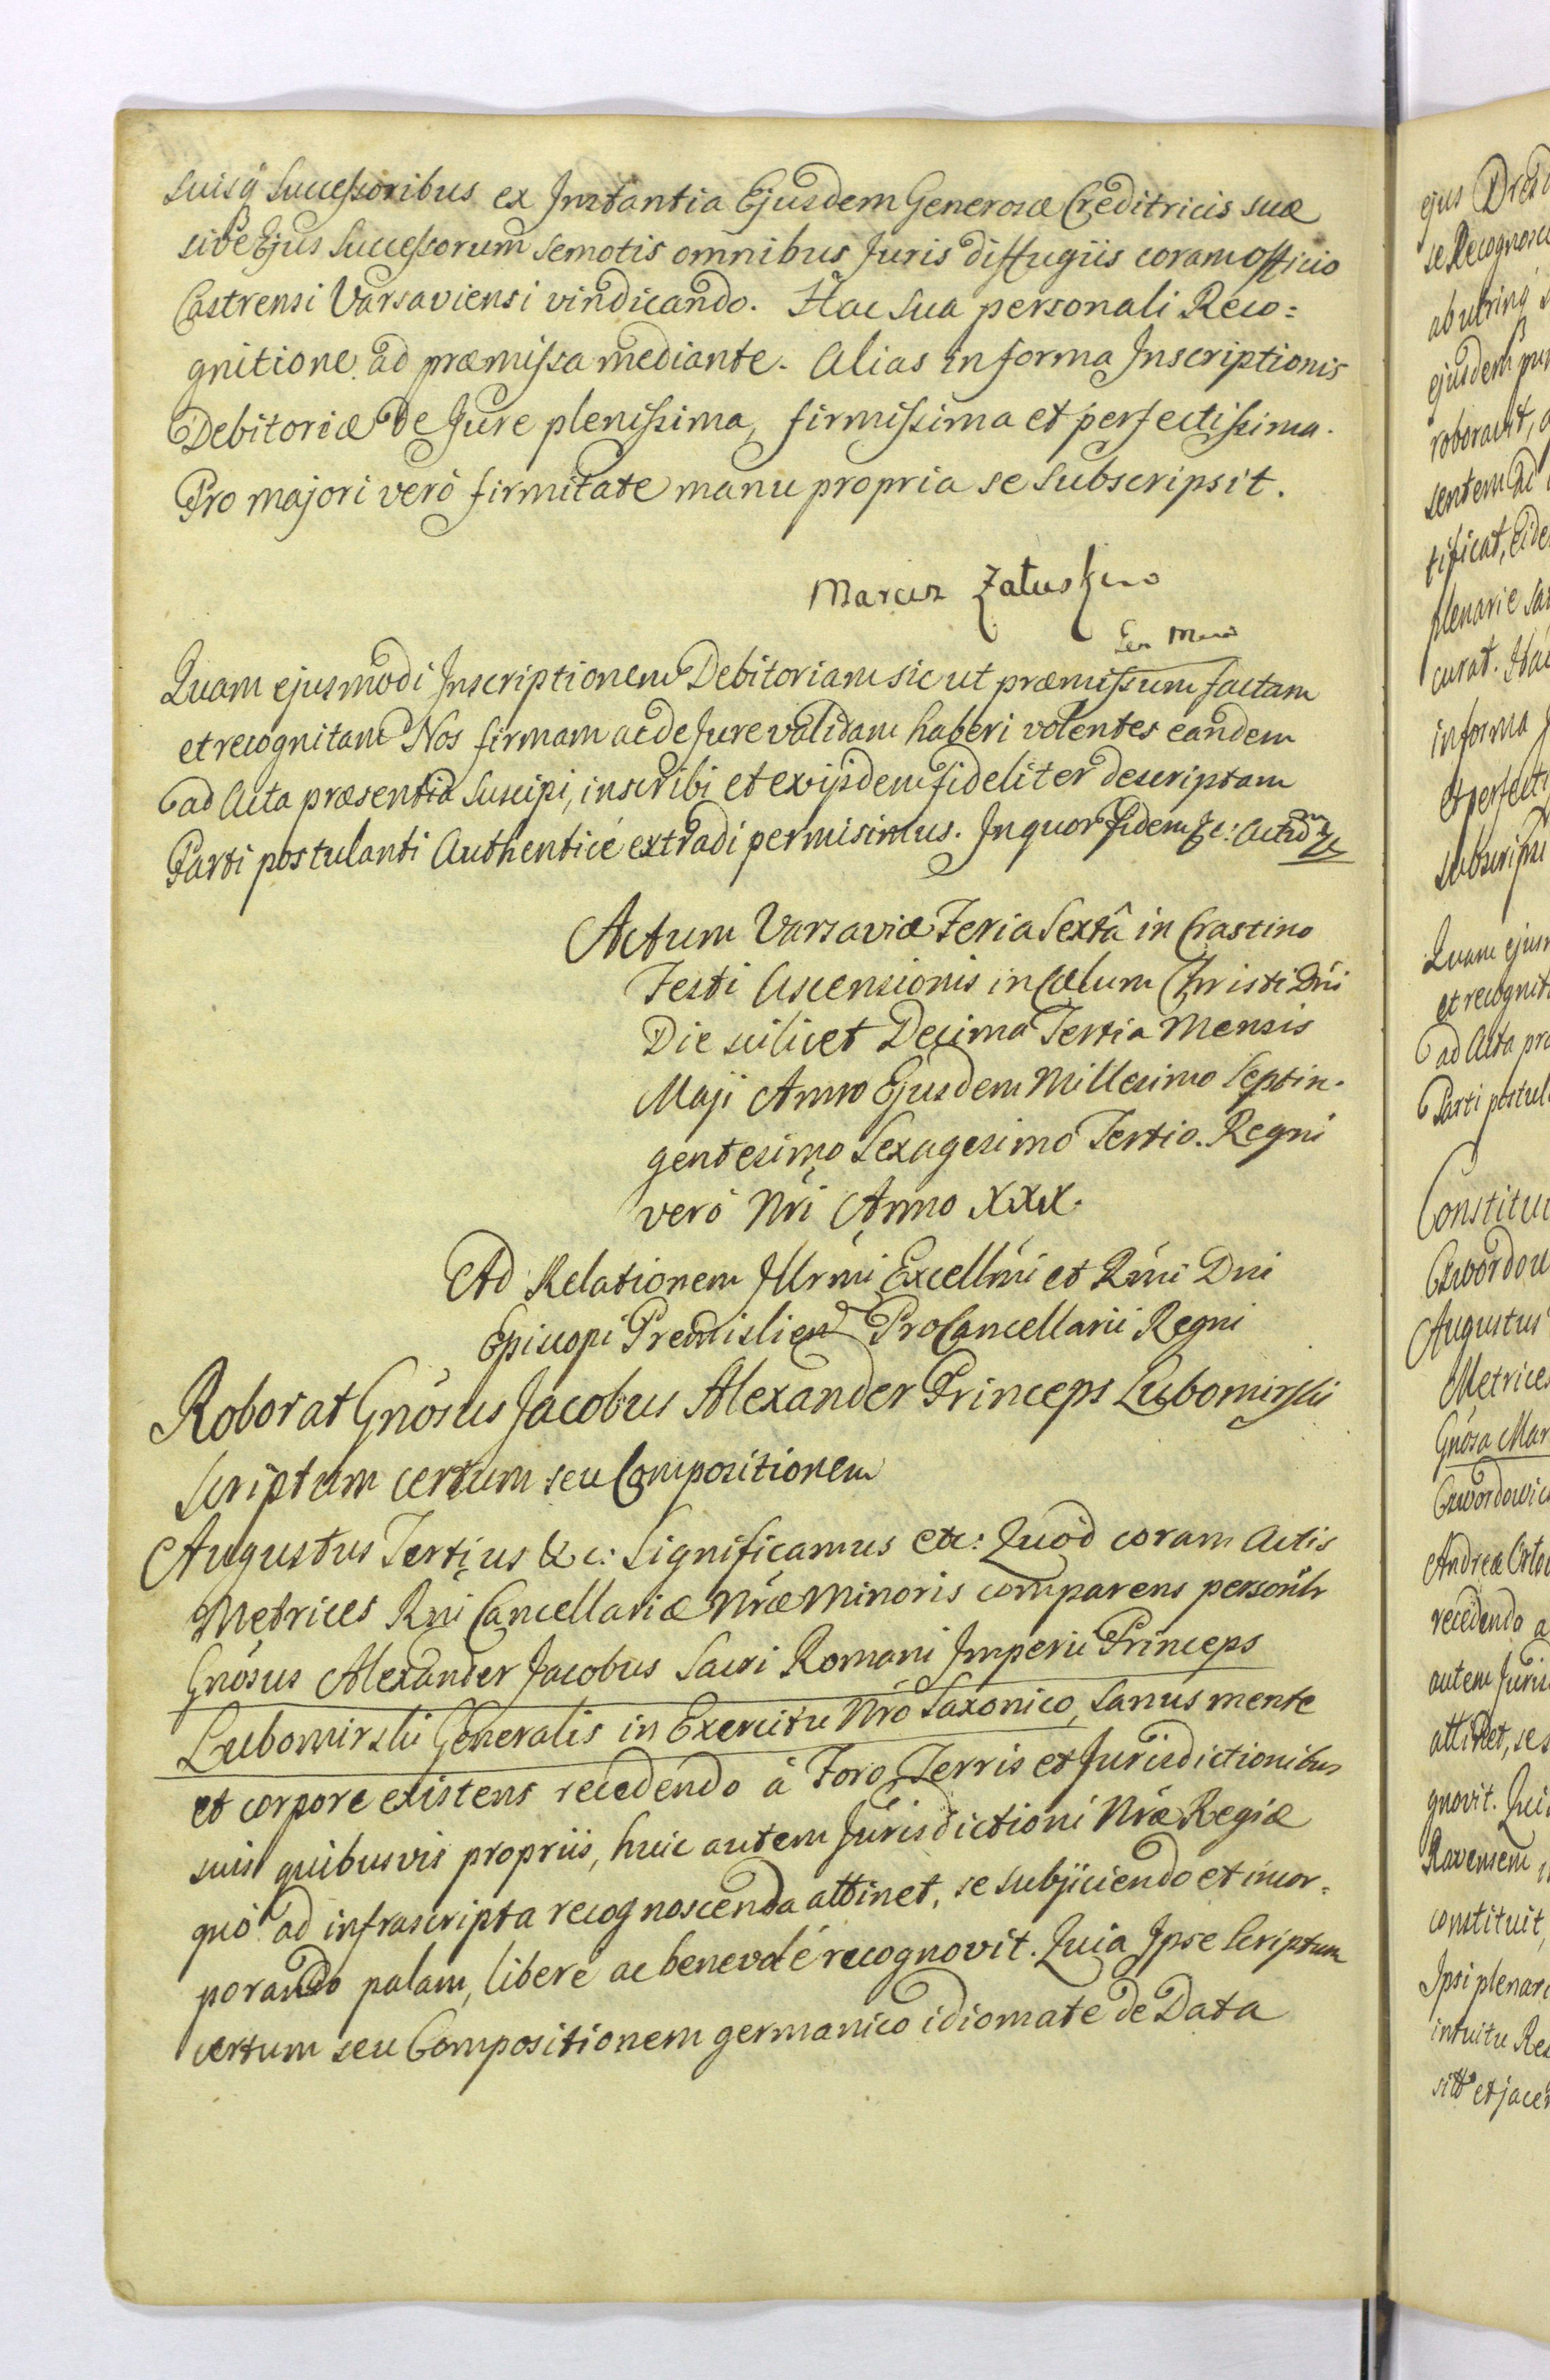 suisq Successoribus ex Instantia Ejusdem Generosæ Creditricis suæ
sive Ejus Successorum semotis omnibus Juris diffugiis coram Officio
Castrensi Varsaviensi vindicando. Hac sua personali Reco=
gnitione ad præmissa mediante. Alias in forma Inscriptionis
Debitoriæ de Jure plenissima, firmissima et perfectissima.
Pro majori verò firmitate manu propria se subscripsit.
Marcin Załuski
Quam ejusmodi Inscriptionem Debitoriam sic ut præmissum factam
et recognitam Nos firmam ac de Jure validam haberi volentes eandem
ad Acta præsentia suscipi, inscribi et ex ijsdem fideliter descriptam
Parti postulanti Authenticè extradi permisimus. In quor fidem &c:
Actum Varsaviæ Feria Sextâ in Crastino
Festi Ascensionis in Cœlum Christi Dni
Die scilicet Decima Tertia Mensis
Maji Anno Ejusdem Millesimo Septin-
gentesimo Sexagesimo Tertio. Regni
verò Nri Anno XXX.
Ad Relationem Illrmi Excellmi et Rmi Dni
Episcopi Premislien ProCancellarii Regni
Roborat Gnosus Jacobus Alexander Princeps Lubomirski
Scriptum certum seu Compositionem
Augustus Tertius &c: Significamus etc: Quod coram Actis
Metrices Rni Cancellariæ Nræ Minoris comparens personlr
Gnosus Alexander Jacobus Sacri Romani Imperii Princeps
Lubomirski Generalis in Exercitu Nro Saxonico, sanus mente
et corpore existens recedendo à Foro, Terris et Jurisdictionibus
suis quibusvis propriis, huic autem Jurisdictioni Nræ Regiæ
quò ad infrascripta recognoscenda attinet, se subjiciendo et incor=
porando palam, liberè ac benevolè recognovit. Quia Ipse Scriptum
certum seu Compositionem germanico idiomate de Data
ejus
se Recognosce
ab utrinq
ejusdem
roboravit,
sentem ad
tificat, Eide
plenarie
curat. Hac
in forma
et perfecti
subscripsi
Quam ejusm
et recognit
ad Acta pra
Parti postul
Constitu
Augustus
Metrices
Gnosa Mar
Andreæ
recedendo a
autem Juris
attinet, se s
gnovit. Qui
Ravensem
constituit,
Ipsi plenari
intuitu Re
et jace